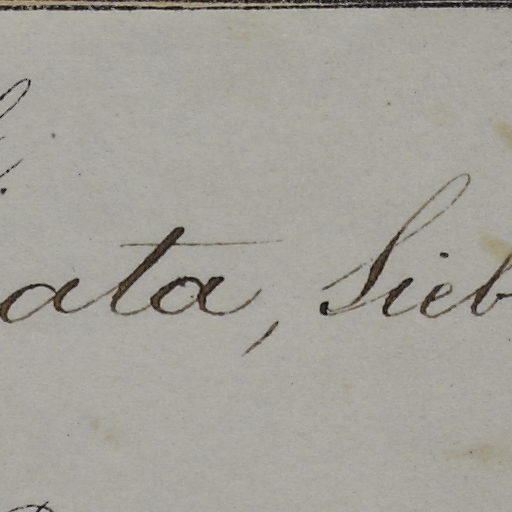 ata, Sieb